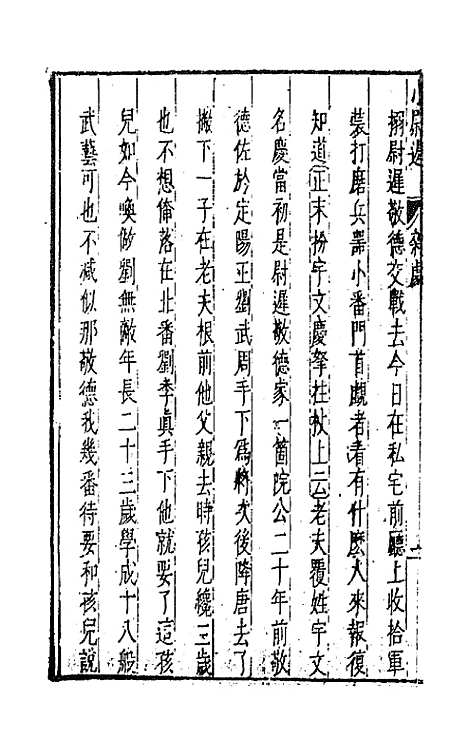 小尉遲 雜劇 二
搦尉遲敬德交戰去今日在私宅前廳上收拾軍
裝打磨兵器小番門首覷者看有什麽人來報復
知道正末扮宇文慶拏拄杖上云老夫覆姓宇文
名慶當初是尉遲敬德家一箇院公二十年前敬
德佐於定陽王劉武周手下爲將次後降唐去了
撇下一子在老夫根前他父親去時孩兒纔三歲
也不想俺落在北番劉季真手下他就要了這孩
兒如今喚做劉無敵年長二十三歲學成十八般
武藝可也不減似那敬德我幾番待要和孩兒說